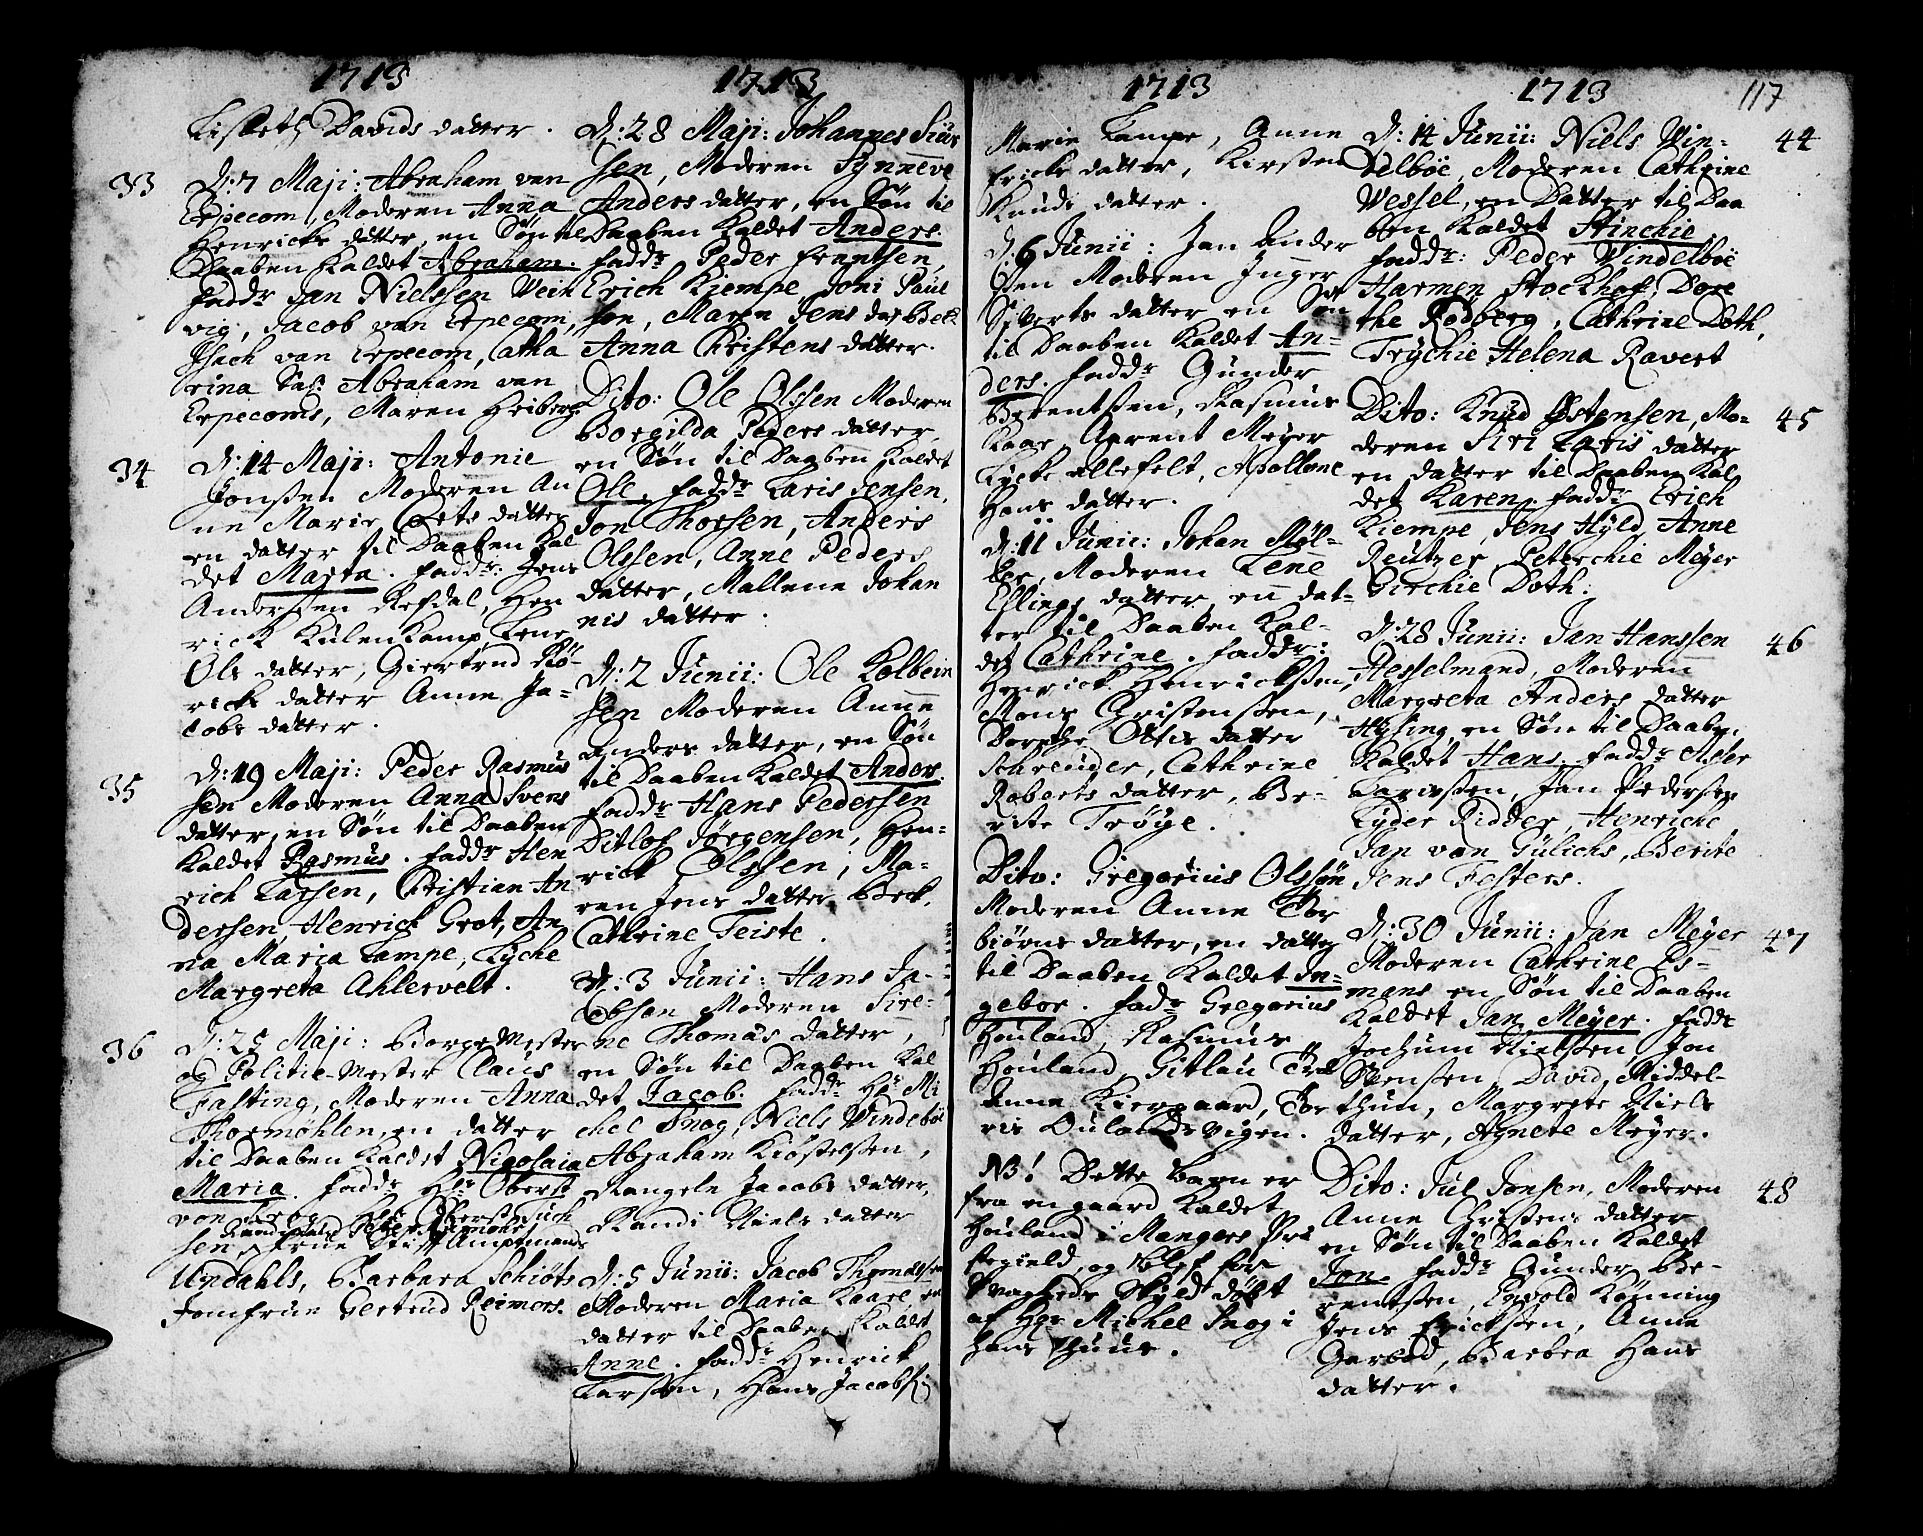 1713
Lisbeth Davids datter.
33
D: 7 Maji: Abraham van
Erpecom, Moderen Anna
Henrichs datter, en Søn til
Daaben Kaldet Abraham.
Faddr Jan Nielssen Wein
vig, Jacob van Erpecom,
Isach van Erpecom, Catha
rina Sal: Abraham van
Erpecoms, Maren Heiberg
34
D: 14 Maji: Antonie
Jonssen Moderen An
ne Marie datter
en datter til Daaben Kal
det Marta. Faddr: Jens
Anderssen Refdal, Hen
rick Kulenkamp, Lene
Ols datter, Giertrud
ricks datter Anne Ja-
cobs datter.
35
D: 19 Maji: Peder Rasmus
sen Moderen Anna Svens
datter, en Søn til Daaben
Kaldet Rasmus. Faddr Hen
rich Larsen, Christian An
dersen, Henrich Grot, An
na Maria Lampe, Lyche
Margreta Ahlervelt.
36
D: 25 Maji: Borge Mester
og Politie-Mester Claus
Fasting, Moderen Anna
Thormøhlen, en datter
til Daaben Kaldet Nicolaia
Maria. Faddr Hr Oberst
von
sen, Frue Stift Amptmands
Undahls, Barbara Schiøts
Jomfrue Gertrud Reimers.
1713
D: 28 Maji: Johannes Siur
sen, Moderen Synneve
Anders datter, en Søn til
Daaben Kaldet Anders.
Faddr Peder Frantsen,
Erich Kiempe Joni Paul
sen, Maren Jens
Anna Christens datter.
Dito: Ole Olssen Moderen
Borgilda Peders datter
en Søn til Daaben Kaldet
Ole, Faddr Laris Jensen,
Jon Thorsen, Anders
Olssen, Anne Peders
datter, Mallene Johan
nis datter.
D: 2 Junii: Ole Kolbein
sen Moderen Anne
Anders datter, en Søn
til Daaben Kaldet Anders.
Faddr Hans Pedersen
Ditlof Jørgensen, Hen-
rick Olssen, Ma-
ren Jens datter Beck,
Cathrine Teiste.
D: 3 Junii: Hans Ja-
cobsøn Moderen Sire-
ne Thomas datter,
en Søn til Daaben Kal
det Jacob. Faddr Hr Mi
chel Snog, Niels Vindebøe
Abraham Kiøstelssen,
Rangele Jacobs datter,
Randi Niels datter
D: 5 Junii: Jacob Thomassen
Moderen Maria Kaare, en
datter til Daaben Kaldet
Anne. Faddr Henrick
Larssen, Hans Jacobs
1713
Marie Lampe, Anne
Ericks datter, Kirsten
Knuds datter.
D: 6 Junii: Jan Ander
ssen Moderen Inger
Siverts datter en Søn
til Daaben Kaldet An-
ders. Faddr Gunder
Berentsen, Rasmus
Kaar, Arent Meyer
Lycke Allefelt, Apollone
Hans datter.
D: 11 Junii: Johan
Moderen Lene
datter, en dat-
ter til Daaben Kal-
det Cathrine. Faddr:
Henrick Henrickssen,
Mons Christenssen,
Dorethe Ottis datter
Schreuder, Cathrine
Roberts datter, Be-
rite Trøye.
Dito: Gregorius Olssøn
Moderen Anne Tor
biørns datter, en datter
til Daaben Kaldet In-
gebor. Fadr Gregorius
Houland, Rasmus
Houland, Gitlau
Anne Kiergaard, Tor
ris
NB! Dette barn er
fra en gaard Kaldet
Houland i Mangers Præ
stegield, og blef for
svagheds Skyld døbt
af Hr Michel Snog i
hans Huus.
1713
117
44
D: 14 Junii: Niels Vin-
delbøe, Moderen Cathrine
Wessel, en Datter til Daa
ben Kaldet Stinchie.
Faddr: Peder Windelbøe
Harmen Stockhoff, Dore
the Rodberg, Cathrine Doth,
Trychie Helena Ravert
45
Dito: Knud Østensen, Mo-
deren Siri Laris datter
en datter til Daaben Kal
det Karen. Faddr Erich
Kiempe, Jens Hyld, Anne
Reutzer, Peterchie Meyer
Girchie Doth.
46
D: 28 Junii: Jan Hanssen
Hesselmand, Moderen
Margreta Anders datter
Hysing, en Søn til Daaben
Kaldet Hans. Faddr Asser
Larissen, Jan Pedersen
Lyder Ridder, Henriche
Jan von Gülichs, Berite
Jens Festers.
47
D: 30 Junii: Jan Meyer
Moderen Cathrine Es-
mans en Søn til Daaben
Kaldet Jan Meyer. Faddr
Jochum Nielssen, Jon
Svenssen, David Middel-
thun, Margrete Niels
datter, Agnete Meyer.
48
Dito: Jul Jonsen, Moderen
Anne Christens datter
en Søn til Daaben Kaldet
Jon. Faddr Gunder Be-
rentssen, Kønning
Jens Erickssen, Anne
Garbod, Barbra Hans
datter.